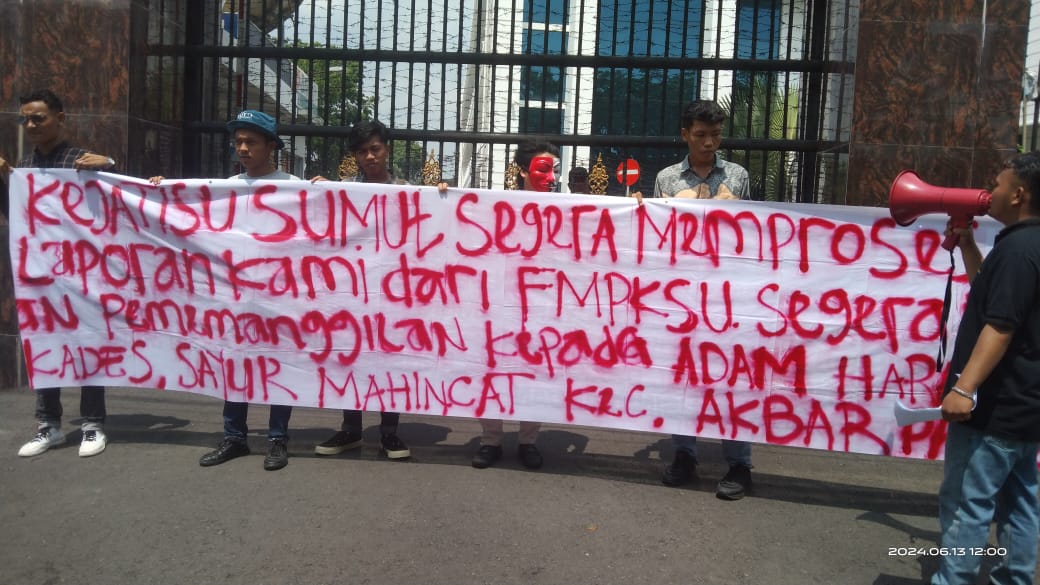 KEJATISU SUMUt SEgERA MEmproseS
LaporanKami dari FMPKSU. Segera
PEMEmanggILAN KEpada ADAM HAR
KADES, SAYUR MAHINCAT KEC. AKBAR
2024.06.13 12:00